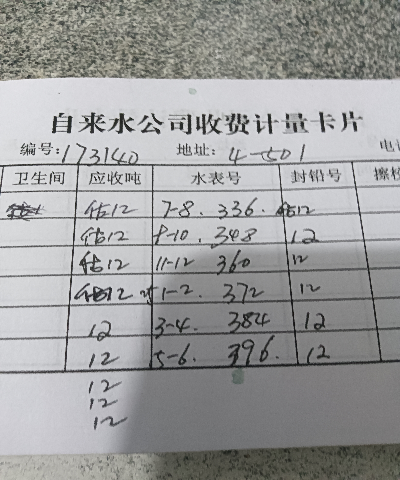 自来水公司收费计量卡片
编号:173140 地址: 4-501 电
卫生间 应收吨 水表号 封铅号 擦
估12 7-8. 336. 估12
估12 9-10. 348 12
估12 11-12 360 12
估12 1-2. 372 12
12 3-4. 384 12
12 5-6. 396. 12
12
12
12